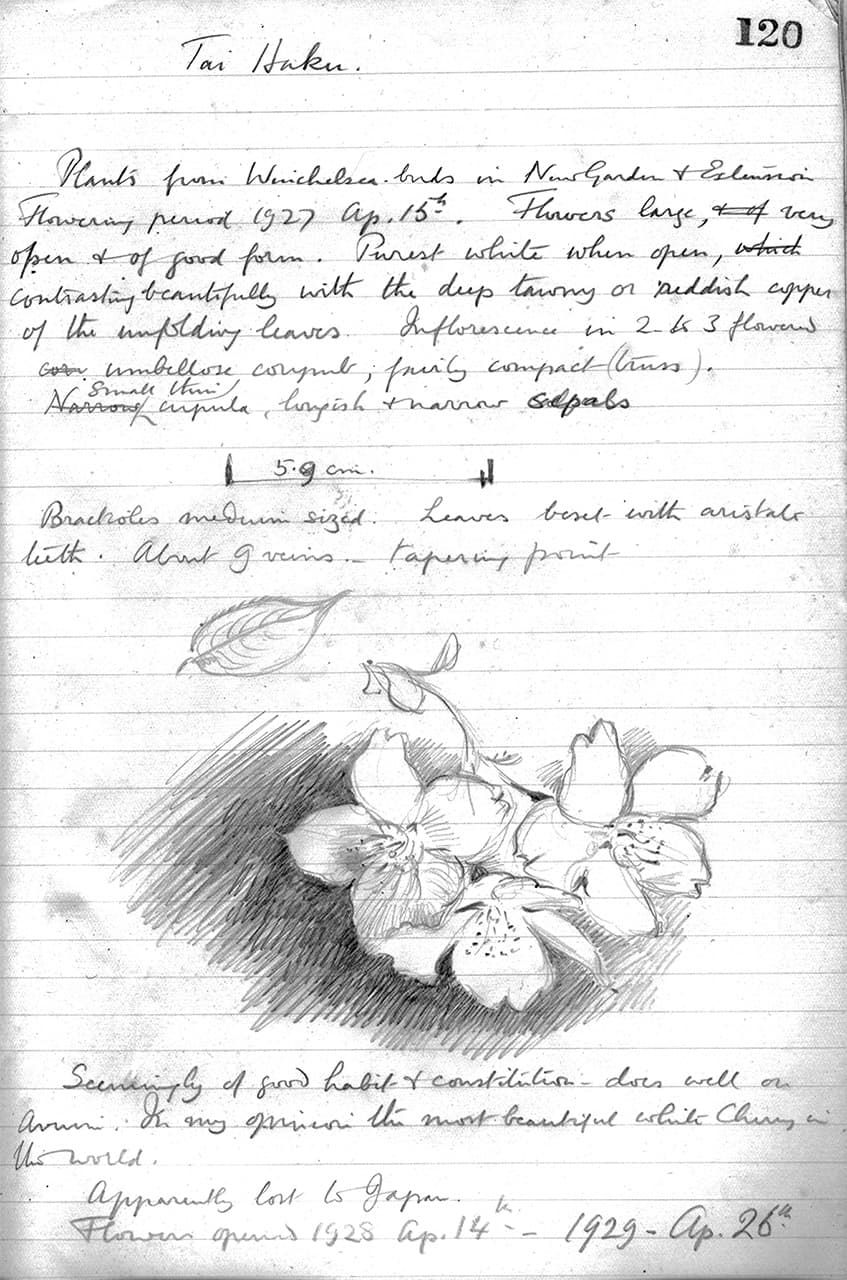 120
Tai Haku.
Plants from Winchelsea buds in New Garden & Extension
Flowering period 1927 Ap. 15th. Flowers large, & of very
open & of good form. Purest white when open, which
contrasting beautifully with the deep tawny or reddish copper
of the unfolding leaves. Inflorescence in 2 to 3 flowered
cor umbellose corymb, fairly compact (truss).
Narrow small thin cupula, longish & narrow sepals
5.9 cm.
Bracteoles medium sized. Leaves beset with aristate
teeth. About 9 veins - tapering point
Seemingly of good habit & constitution - does well on
avium. In my opinion the most beautiful white Cherry in
the world.
Apparently lost to Japan.
Flowers opened 1928 Ap. 14th - 1929 - Ap. 26th